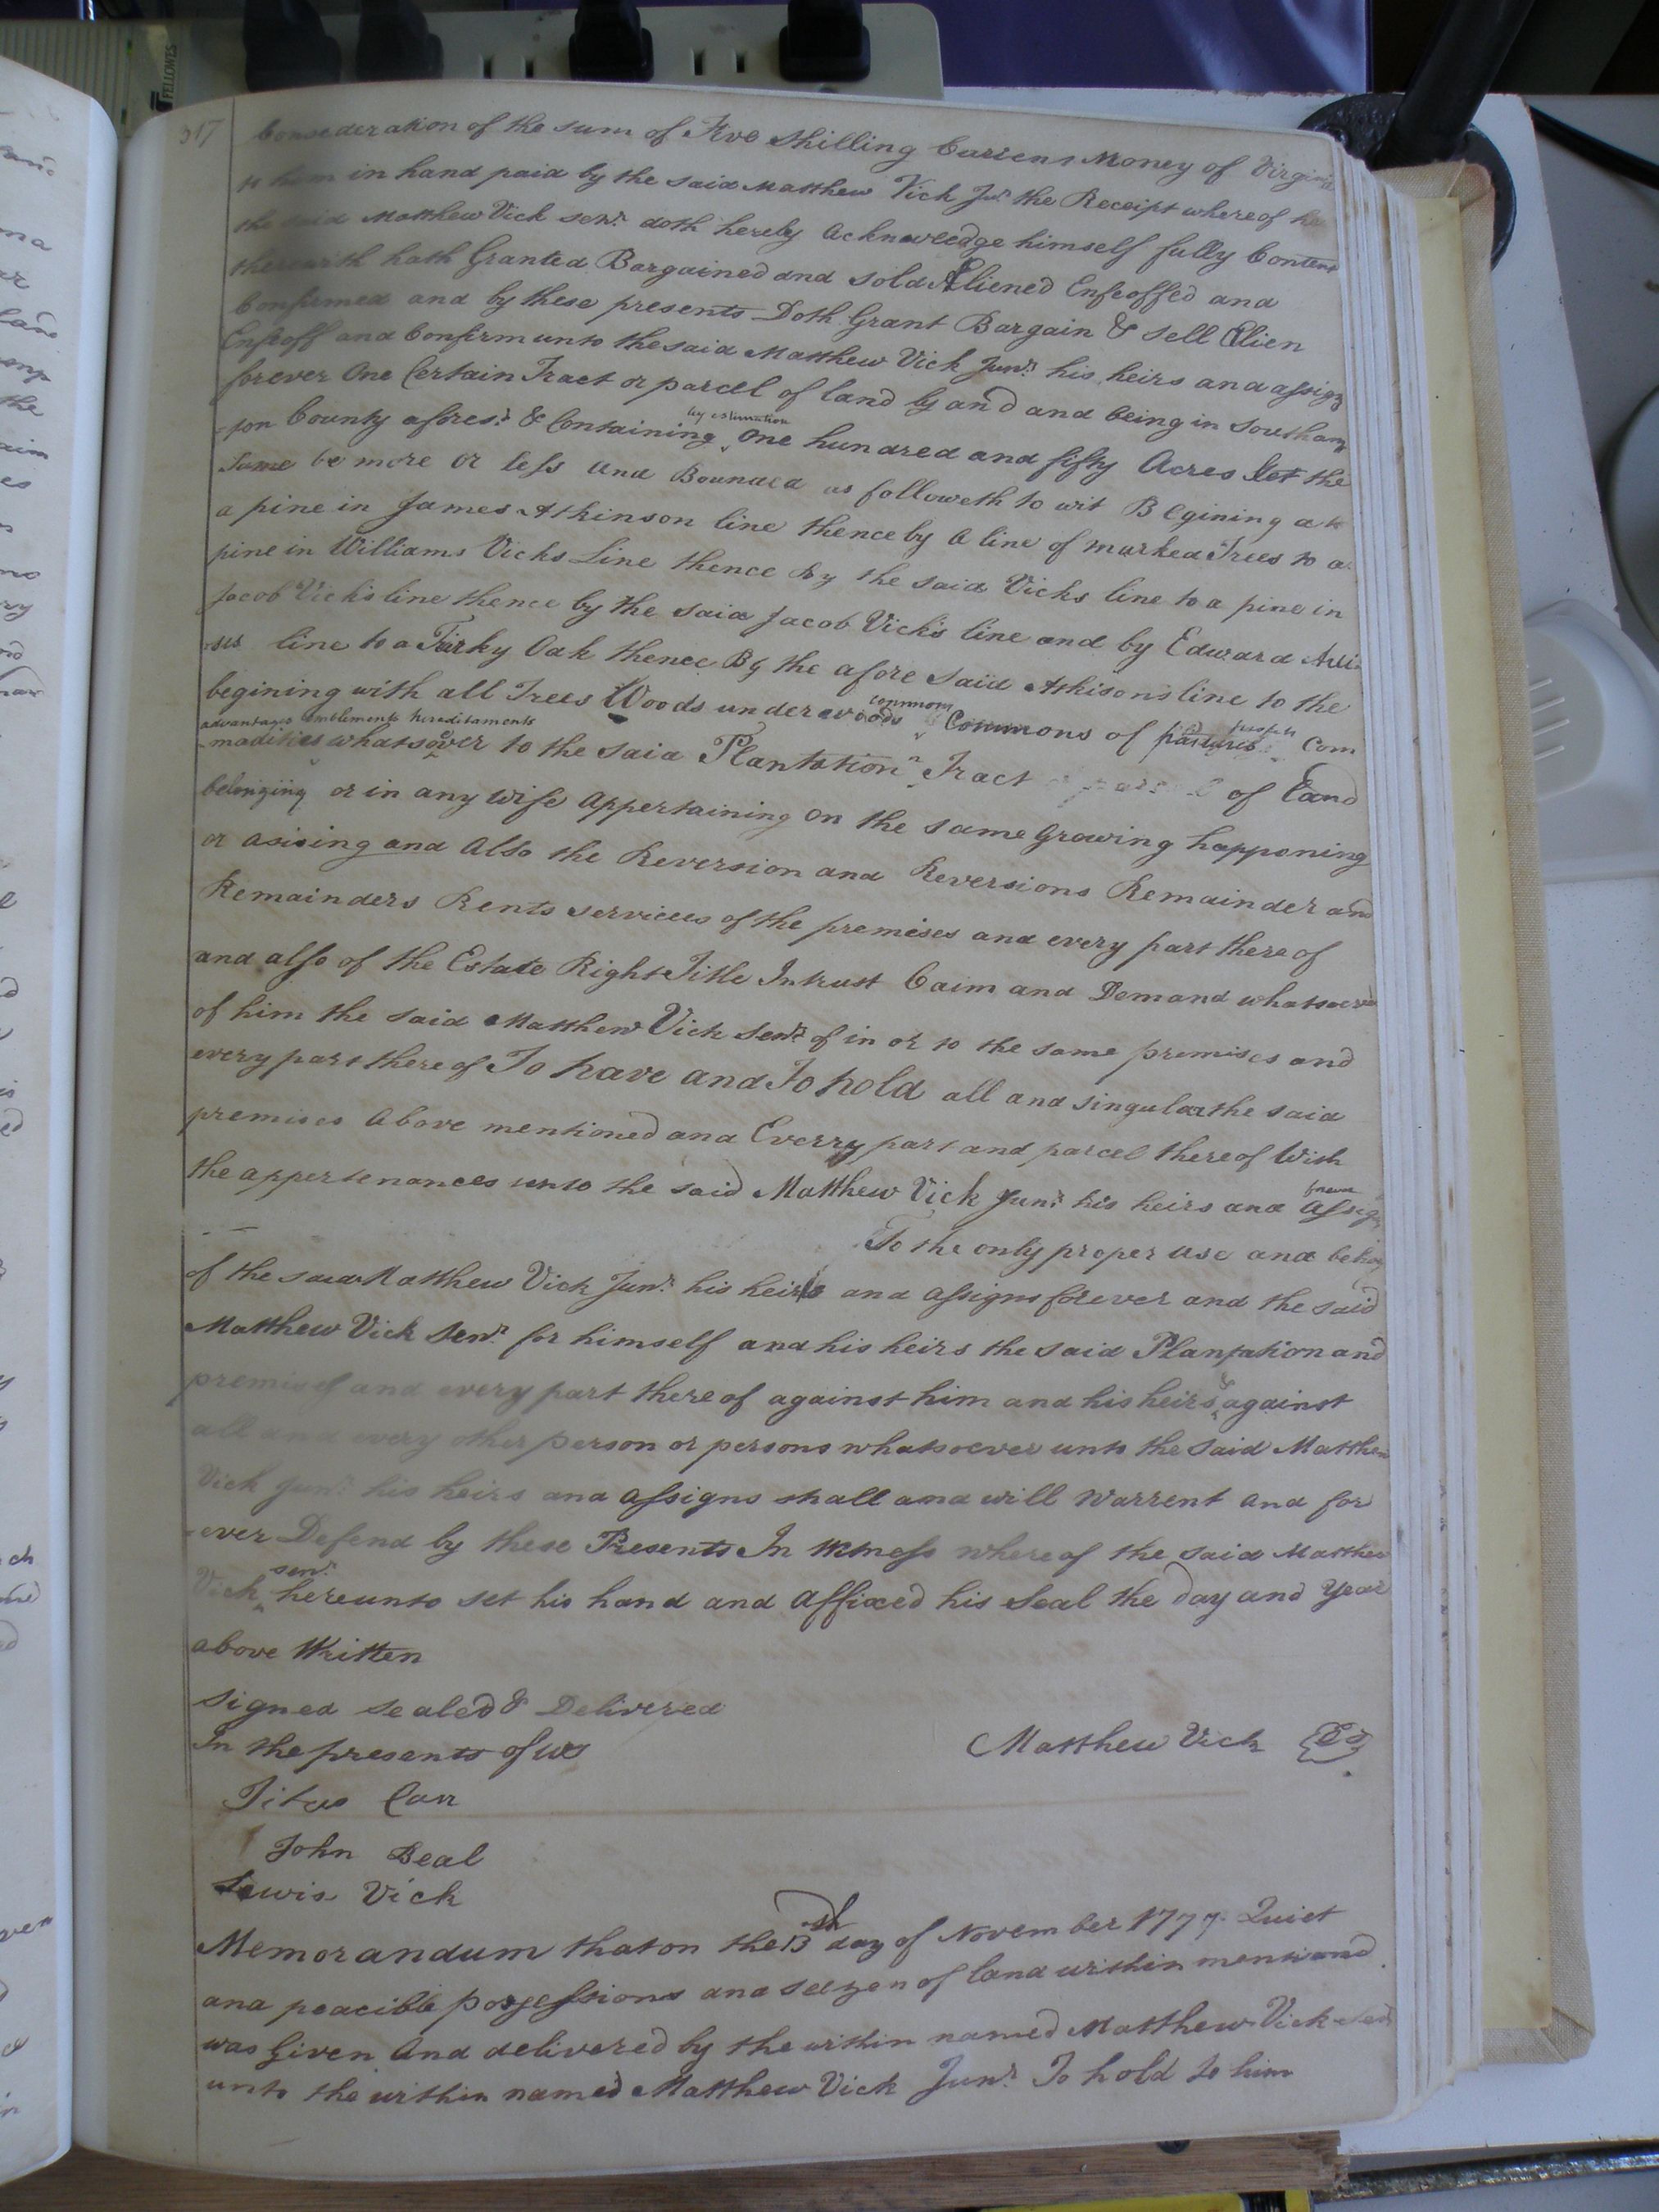 FELLOWES
317
Consederation of the sum of Five Shilling Currens Money of Virginia
to him in hand paid by the said Matthew Vick Junr the Receipt whereof he
the said Matthew Vick senr. doth hereby Acknowledge himself fully Content
therewith hath Granted Bargained and sold Aliened Enfeoffed and
Confirmed and by these presents Doth Grant Bargain & sell Alien
Enfeoff and Confirm unto the said Matthew Vick Junr. his heirs and assigns
forever One Certain Tract or parcel of land by and and being in Southam
-ton County afores.d & Containing by estimation One hundred and fifty Acres let the
Same be more or less and Bounded as followeth to wit Begining at
a pine in James Atkinson line thence by a line of marked Trees to a
pine in Williams Vicks Line thence By the said Vicks line to a pine in
Jacob Vick's line thence by the said Jacob Vick's line and by Edward
line to a Turky Oak thence By the afore said Atkison's line to the
begining with all Trees Woods underwoods commons Commons of pastures profits Com
advantages emblements hereditaments
-modities whatsover to the said Plantation Tract or parcel of Land
belonging or in any wise Appertaining on the same Growing happoning
or asising and Also the Reversion and Reversions Remainder and
Remainders Rents services of the premises and every part there of
and also of the Estate Right Title Intrust Caim and Demand whatsoever
of him the said Matthew Vick Senr. of in or to the same premises and
every part there of To have and To hold all and singular the said
premises Above mentioned and Everry part and parcel thereof With
the appertenances unto the said Matthew Vick Junr. his heirs and assigns forever
To the only proper use and behoof
of the said Matthew Vick Junr. his heirs and assigns forever and the said
Matthew Vick Senr. for himself and his heirs the said Plantation and
premises and every part there of against him and his heirs & against
all and every other person or persons whatsoever unto the said Matthew
Vick Junr. his heirs and assigns shall and will Warrent and for
-ever Defend by these Presents In Witness where of the said Matthew
Vick senr. hereunto set his hand and Affixed his Seal the day and Year
above Written
signed sealed & Delivered
In the presents of us
Matthew Vick
Titus Carr
John Beal
Lewis Vick
Memorandum that on the 13th day of November 1777. Quiet
and peacible possessions and seezen of land within mentiond
was Given And delivered by the within named Matthew Vick Senr
unto the within named Matthew Vick Junr. To hold to him